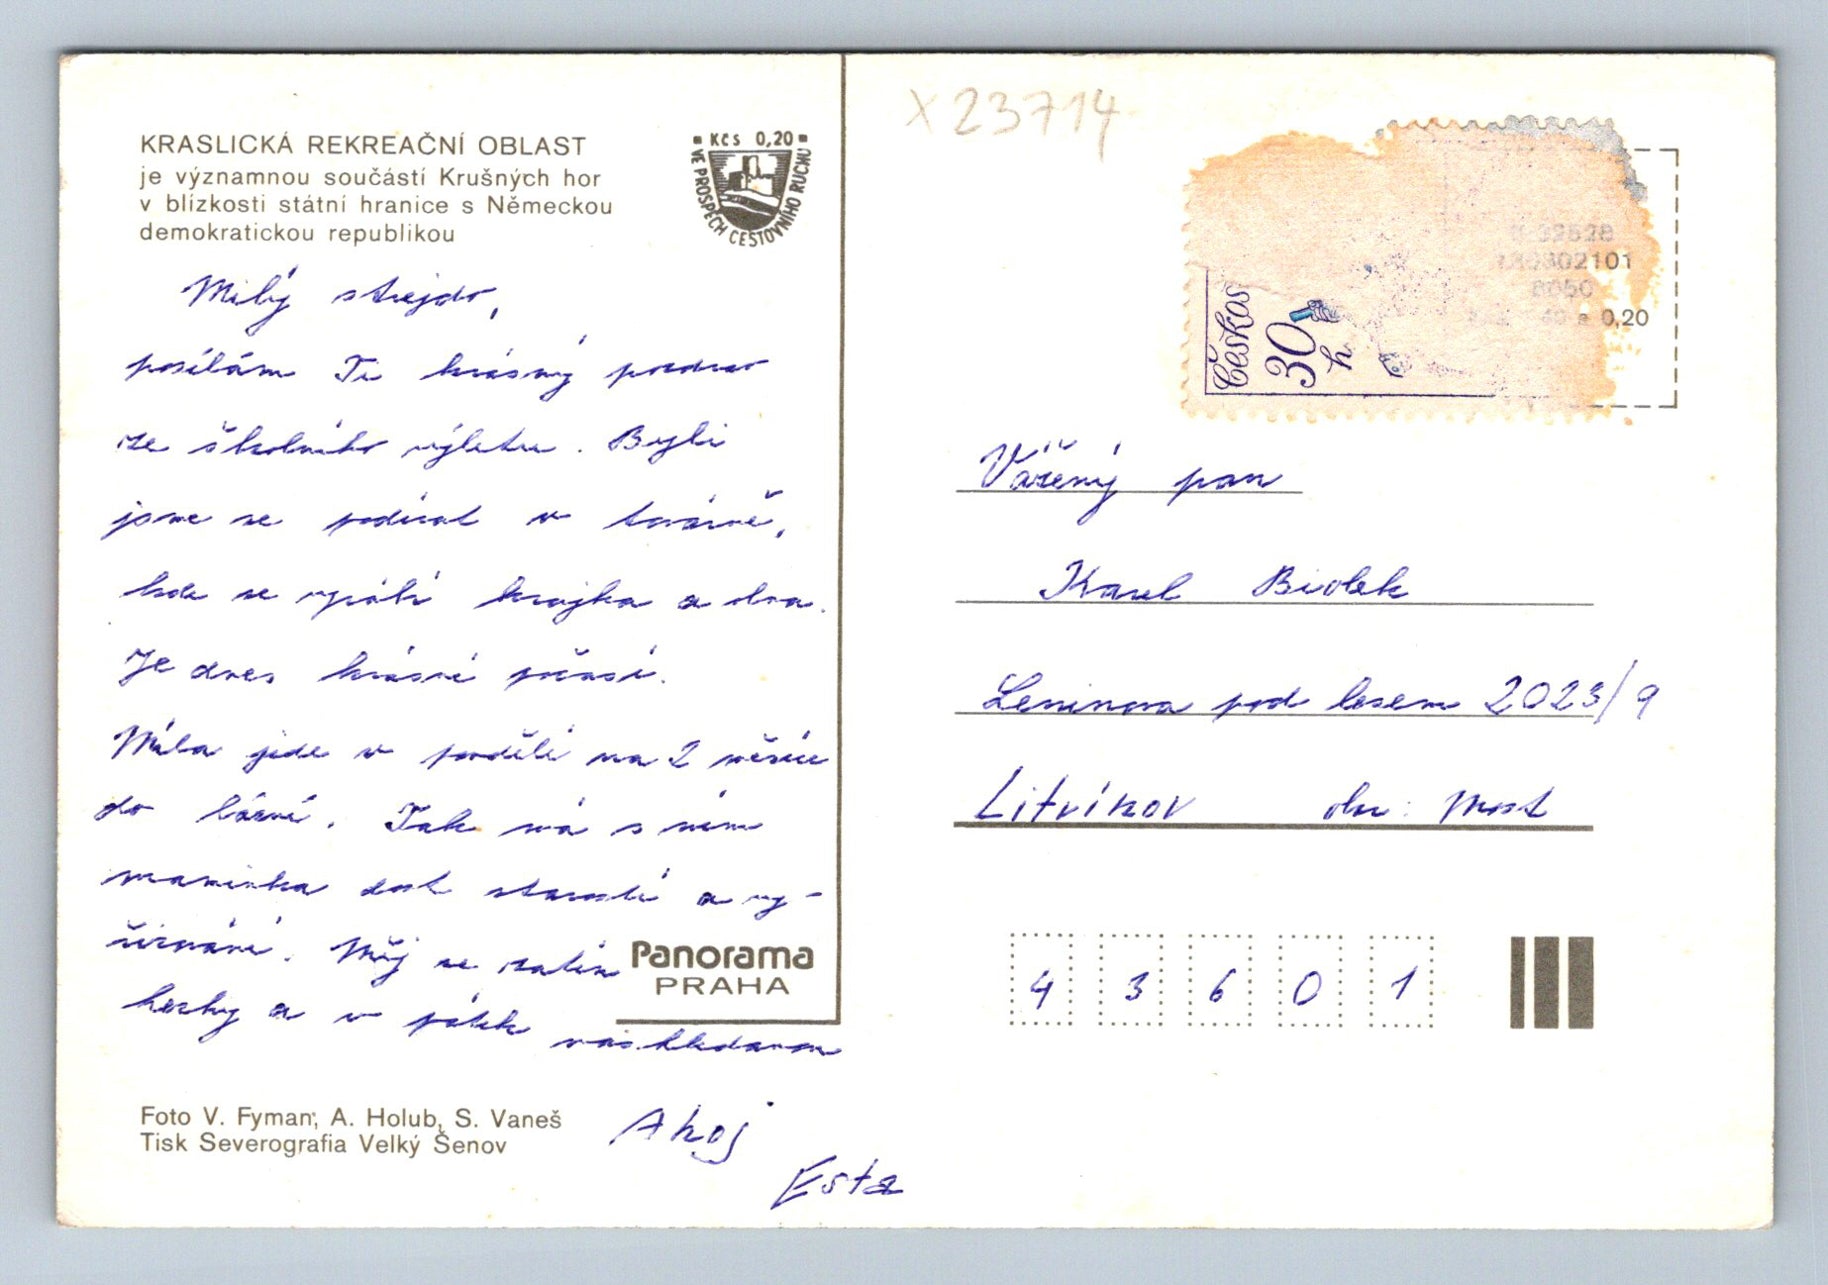 KRASLICKÁ REKREAČNÍ OBLAST
je významnou součástí Krušných hor
v blízkosti státní hranice s Německou
demokratickou republikou
KčS 0,20
VE PROSPĚCH CESTOVNÍHO RUCHU
Milý strejdo,
posílám Ti krásný pozdrav
ze školního výletu. Byli
jsme se podívat v továrně,
kde se vyrábí krajka a
Je dnes krásné počasí.
Míla jede v pondělí na 2 měsíce
do lázní. Tak má s ním
maminka dost starostí a vy-
řizování. Měj se zatím
hezky a v pátek nashledanou
Ahoj
Esta
Panorama
PRAHA
Foto V. Fyman, A. Holub, S. Vaneš
Tisk Severografia Velký Šenov
X 23714
Českos
30
h
302101
0,20
Vážený pan
Karel Biolek
Leninova pod lesem 2023/9
Litvínov okr: Most
4 3 6 0 1